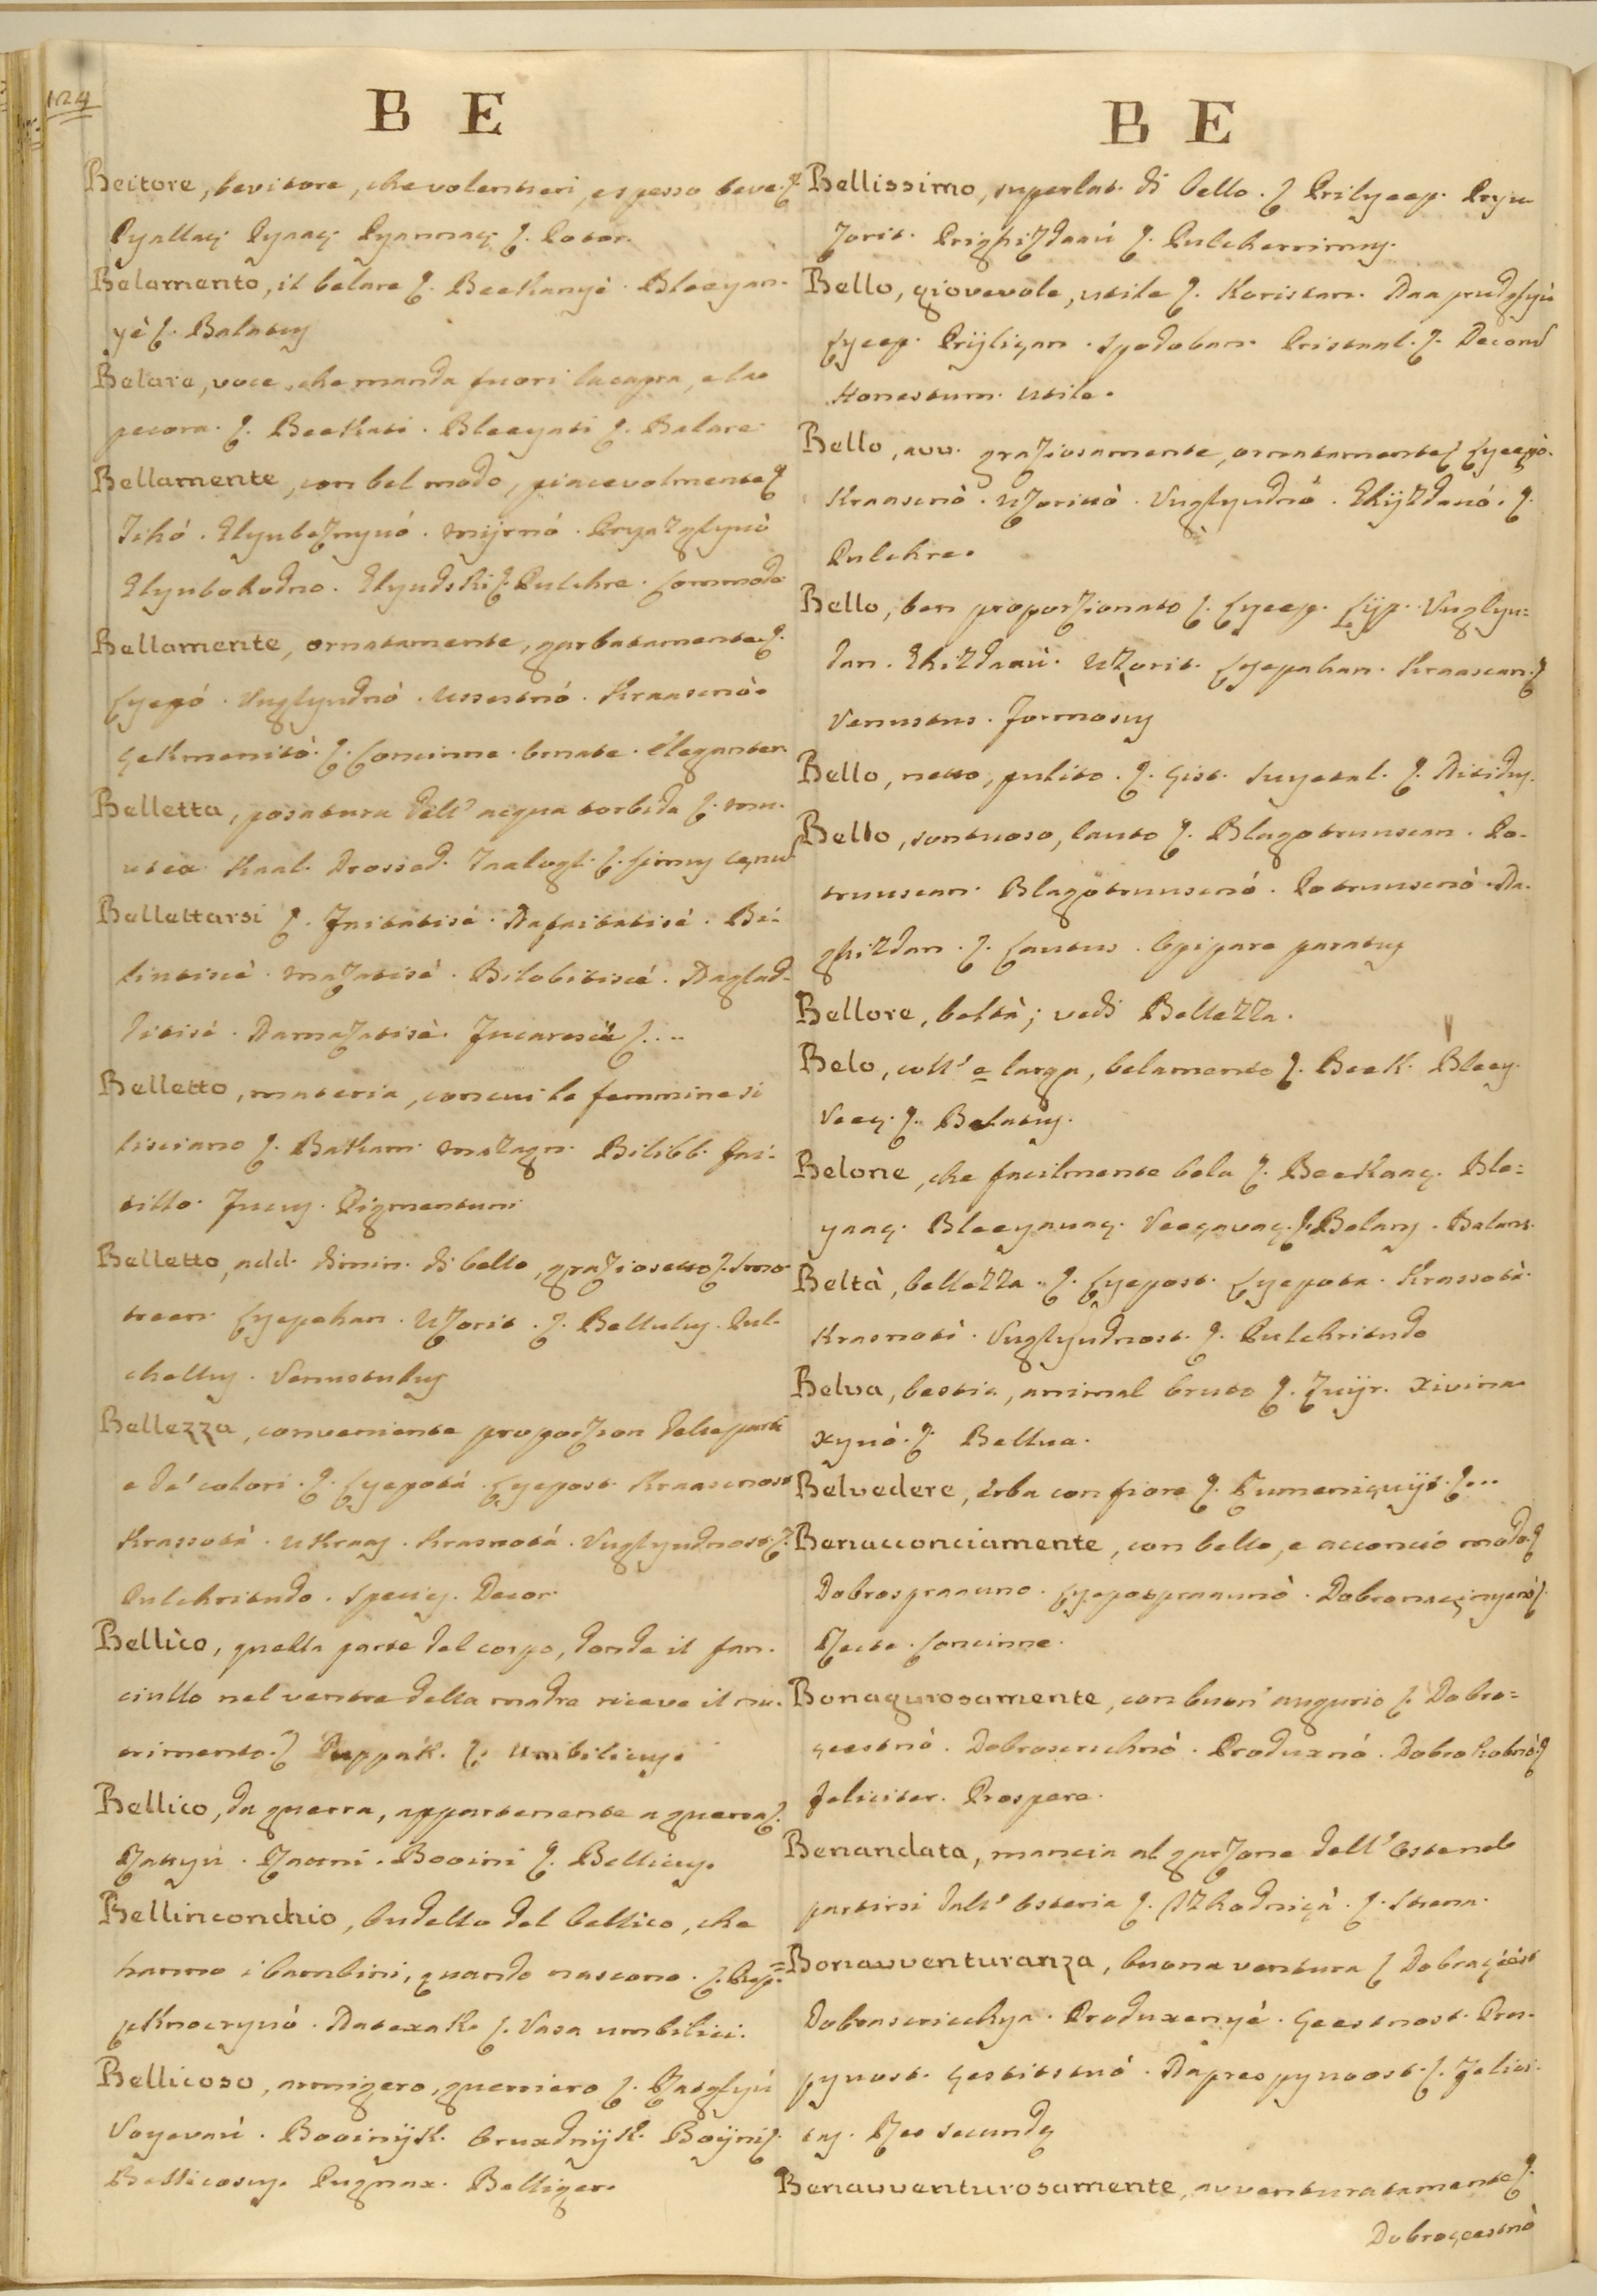 124
B E
Beitore, bevitore, che volentieri, e spesso beve. ſ.
Pyallaç Pyaaç Pyannaç ſ. Potor.
Belamento, il belare ſ. Beekanyè. Bleeyan-
yè ſ. Balatus
Belare, voce, che manda fuori la capra, e la
pecora. ſ. Beekati. Bleeyati ſ. Balare.
Bellamente, con bel modo, piacevolmente ſ.
Tihó. Glyubeznyvó. mijrnó. Pryazglyvò
Glyubohodno. Glyudski ſ. Pulchre. Commode
Bellamente, ornatamente, garbatamente ſ.
Lyepó. Vuglyudnó. Ussestnó. Kraasenò.
Gekmenitò. ſ. Concinne. Ornate. Eleganter.
Belletta, posatura dell' acqua torbida ſ. mu-
utex. Kaal. Drossed. Taalogl. ſ. Limus cænum
Bellettarsi ſ. Faitatisè. Nafaitatisè. Bi-
litisè. Mazatisè. Bilobitisè. Naglad-
ditisè. Namazatisè. ſ. ...
Belletto, materia, con cui le femmine si
lisciano ſ. Bakam. Mazagn. Bililo. Fai-
tilo. Fucus. Pigmentum.
Belletto, add. dimin. di bello, grazioseto ſ. Smo-
treen. Lyepahan. Uzorit. ſ. Bellulus. Pul-
chellus. Venustulus
Bellezza, conveniente proporzion delle parti
e de' colori. ſ. Lyepotá. Lyepost. Kraasenost
Krassotà. Ukraas. Krasnotá. Vuglyudnost. ſ.
Pulchritudo. Species. Decor.
Bellico, quella parte del corpo, donde il fan-
ciullo nel ventre della madre riceve il nu-
trimento. ſ. Puppák. ſ. Umbilicus.
Bellico, da guerra, appartenente a guerra ſ.
Ratnyi. Raatni. Booini ſ. Bellicus.
Bellinconchio, budello del bellico, che
hanno i bambini, quando nascono. ſ. Pup-
pknoeryvó. Natexak. ſ. Vasa umbilici.
Bellicoso, armigero, guerriero ſ. Ratglyú
Voyevaú. Booinijk. Oruxdnijk. Boijni ſ.
Bellicosus. Pugnax. Belliger.
B E
Bellissimo, superlat. di bello. ſ. Prilyeep. Pryu
zorit. Prighizdaaú ſ. Pulcherrimus.
Bello, giovevole, utile ſ. Koristan. Naa prudglyú
Lyeep. Prijliçan. Spodoban. Pristaal. ſ. Decons
Honestum. Utile.
Bello, avv. graziosamente, ornatamente ſ. Lyeepò.
Kraasenò. Uzoritò. Vuglyudnò. Ghijzdavó. ſ.
Pulchre.
Bello, ben proporzionato ſ. Lyeep. Lijp. Vuglyu-
dan. Ghizdaaú. Uzorit. Lyepahan. Kraasan. ſ.
Venustus. Formosus
Bello, netto, pulito. ſ. Çist. Suyetal. ſ. Nitidus.
Bello, sontuoso, lauto ſ. Blagotruusan. Po-
truusan. Blagotruusenó. Potruusenó. Na-
ghizdan. ſ. Lautus. Opipare paratus
Bellore, beltà; vedi Bellezza.
Belo, coll' e larga, belamento ſ. Beek. Bleey.
Veeç. ſ. Balatus.
Belone, che facilmente bela ſ. Beekaaç. Ble-
yaaç. Bleeyavaç. Veeçavaç. ſ. Belans. Balans.
Beltà, bellezza. ſ. Lyepost. Lyepota. Krassotà.
Krasnotì. Vuglyudnost. ſ. Pulchritudo
Belva, bestia, animal bruto ſ. Zvijr. Xivina.
Xyvó. ſ. Bellua.
Belvedere, erba con fiore ſ. ſ. ...
Benacconciamente, con bello, e acconcio modo ſ.
Dobrospraauno. Lyepospraaunò. Dobronaçinyenó ſ.
Recte. Concinne.
Benagurosamente, con buon' augurio ſ. Dobro-
çeestnò. Dobrosrechnò. Produxnó. Dobrokobnò. ſ.
Feliciter. Prospere.
Benandata, mancia al garzone dell' Oste nel
partirsi dall' Osteria ſ. Izhodniçà. ſ. Strena.
Benavventuranza, buona ventura ſ. Dobraçéést
Dobrasriechya. Produxenyè. Çeestnost. Pros-
pynost. Çestitstvó. Naprospynoost. ſ. Felici-
tas. Res secundæ
Benavventurosamente, avventuratamente ſ.
Dobroçeestnò